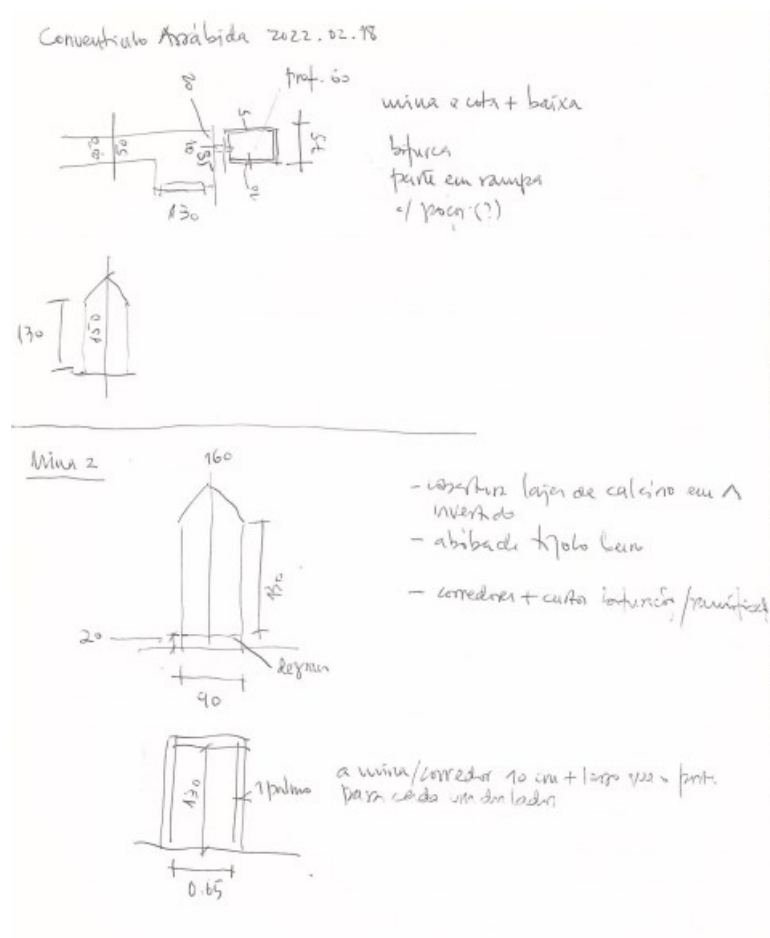 Conventinho Arrábida 2022.02.18
20
prof. 60
5
80
50
10
130
mina a cota + baixa
bifurca
parte em rampa
c/ poço (?)
130
150
Mina 2
160
- cobertura lajes de calcário em Λ
invertido
- abóbada tijolo
130
- corredores + curtos
20
degrau
90
130
1 palmo
a mina/corredor 10 cm + largo que a porta
para cada um dos lados
0.65